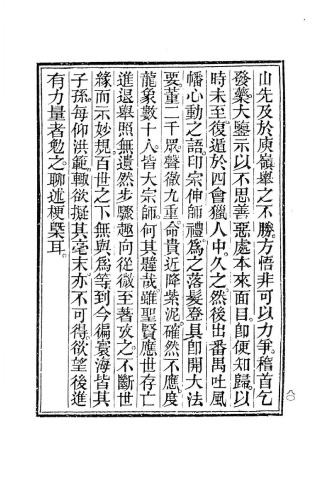 山先及於庾嶺舉之不勝方悟非可以力爭稽首乞
發藥大鑒示以不思善惡處本來面目即便知歸以
時未至復遁於四會獵人中久之然後出番禺吐風
幡心動之語印宗伸師禮爲之落髮登具即開大法
要董二千眾聲徹九重命貴近降紫泥確然不應度
龍象數十人皆大宗師何其韙哉雖聖賢應世存亡
進退舉照無遺然步驟趣向從微至著攷之不斷世
緣而示妙規百世之下無與爲等到今徧寰海皆其
子孫每仰洪範輒欲擬其毫末亦不可得欲望後進
有力量者勉之聊述梗槩耳